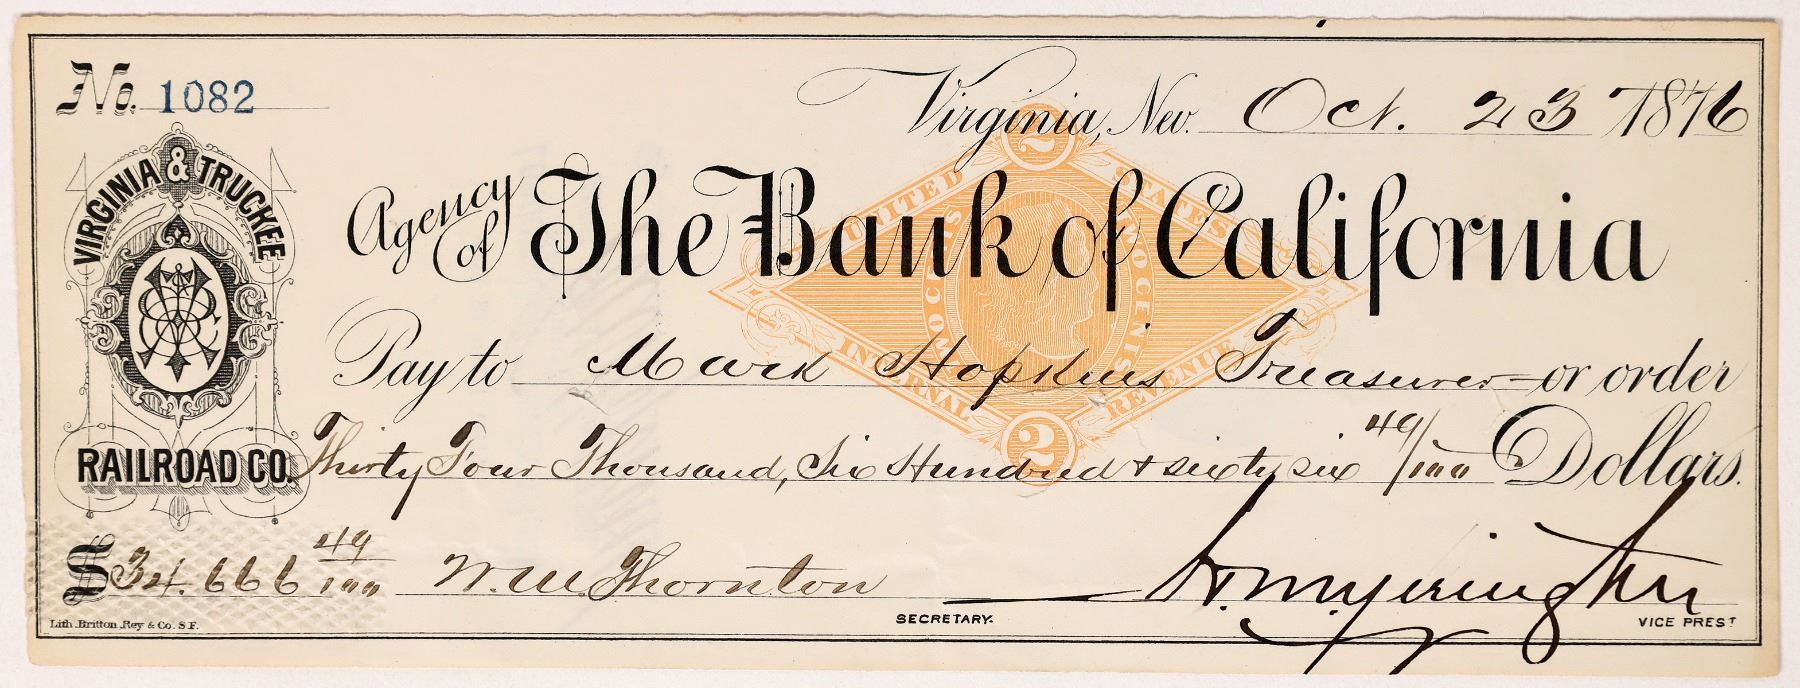 No. 1082
Virginia, Nev. Oct. 23 1876
VIRGINIA & TRUCKEE
RAILROAD CO.
Agency of The Bank of California
UNITED STATES
TWO CENTS
INTERNAL REVENUE
2
2
Pay to Mark Hopkins Treasurer or order
Thirty Four Thousand, Six Hundred & sixty six 49/100 Dollars.
$34.666 49/100 W. M. Thornton H. M. Yerington
SECRETARY. VICE PREST
Lith. Britton, Rey & Co. S.F.